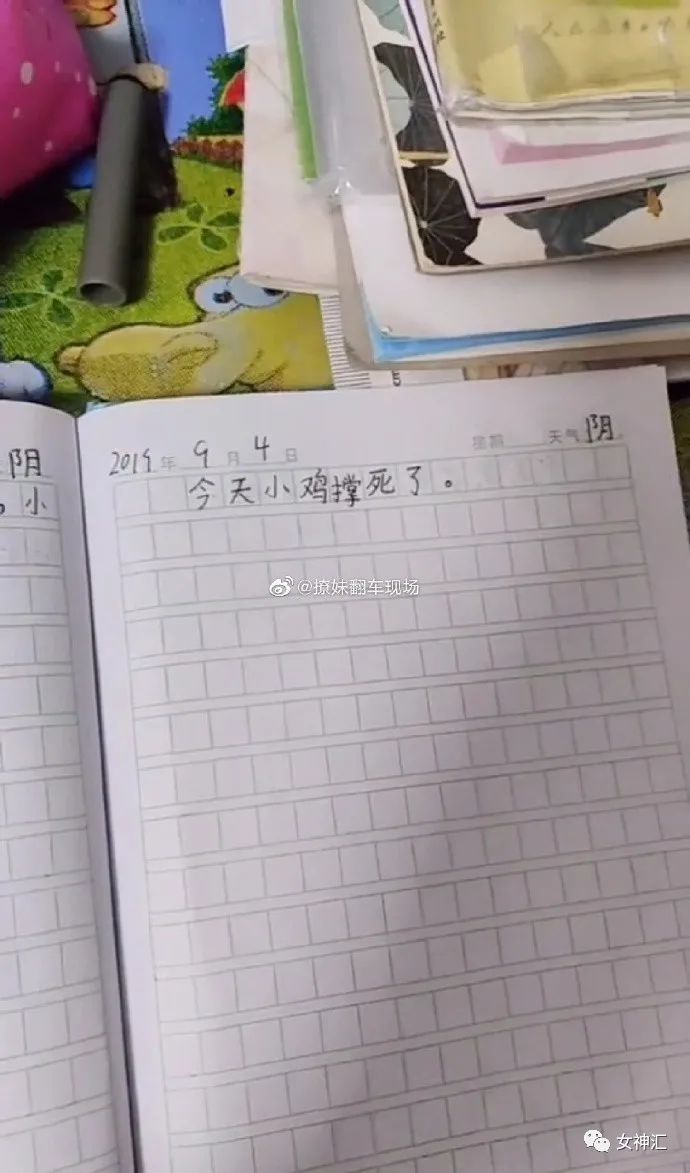 人民
阴
。小
2019年 9月 4日 星期 天气 阴
今天小鸡撑死了。
@撩妹翻车现场
女神汇